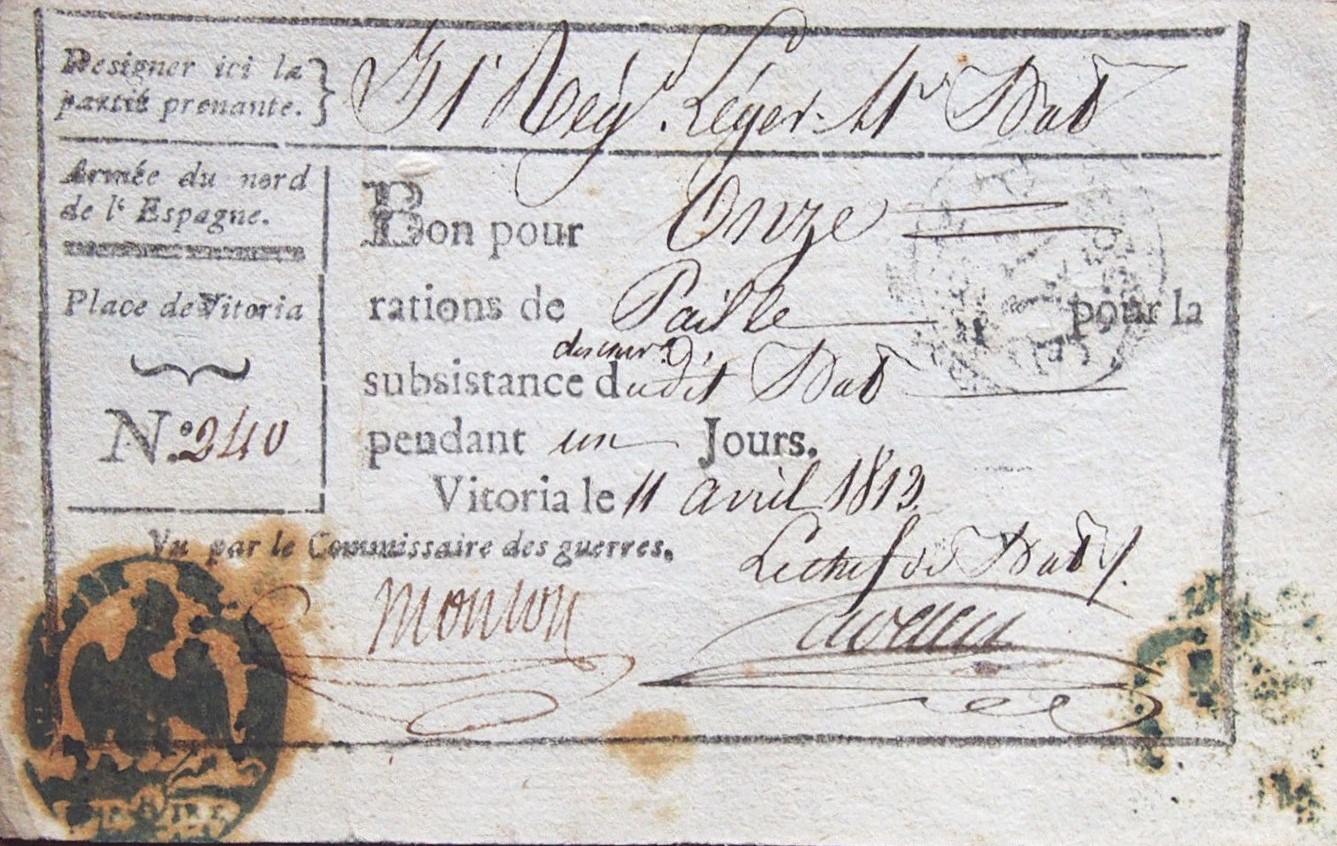 Designer ici la
partie prenante.
31e Régt. Léger. 4e Bat
Armée du nord
de l' Espagne.
Place de Vitoria
N.o 240
Bon pour Onze
rations de Paille pour la
subsistance dudit Bat
pendant un Jours.
Vitoria le 11 avril 1813
Vu par le Commissaire des guerres.
Le chef de Bat